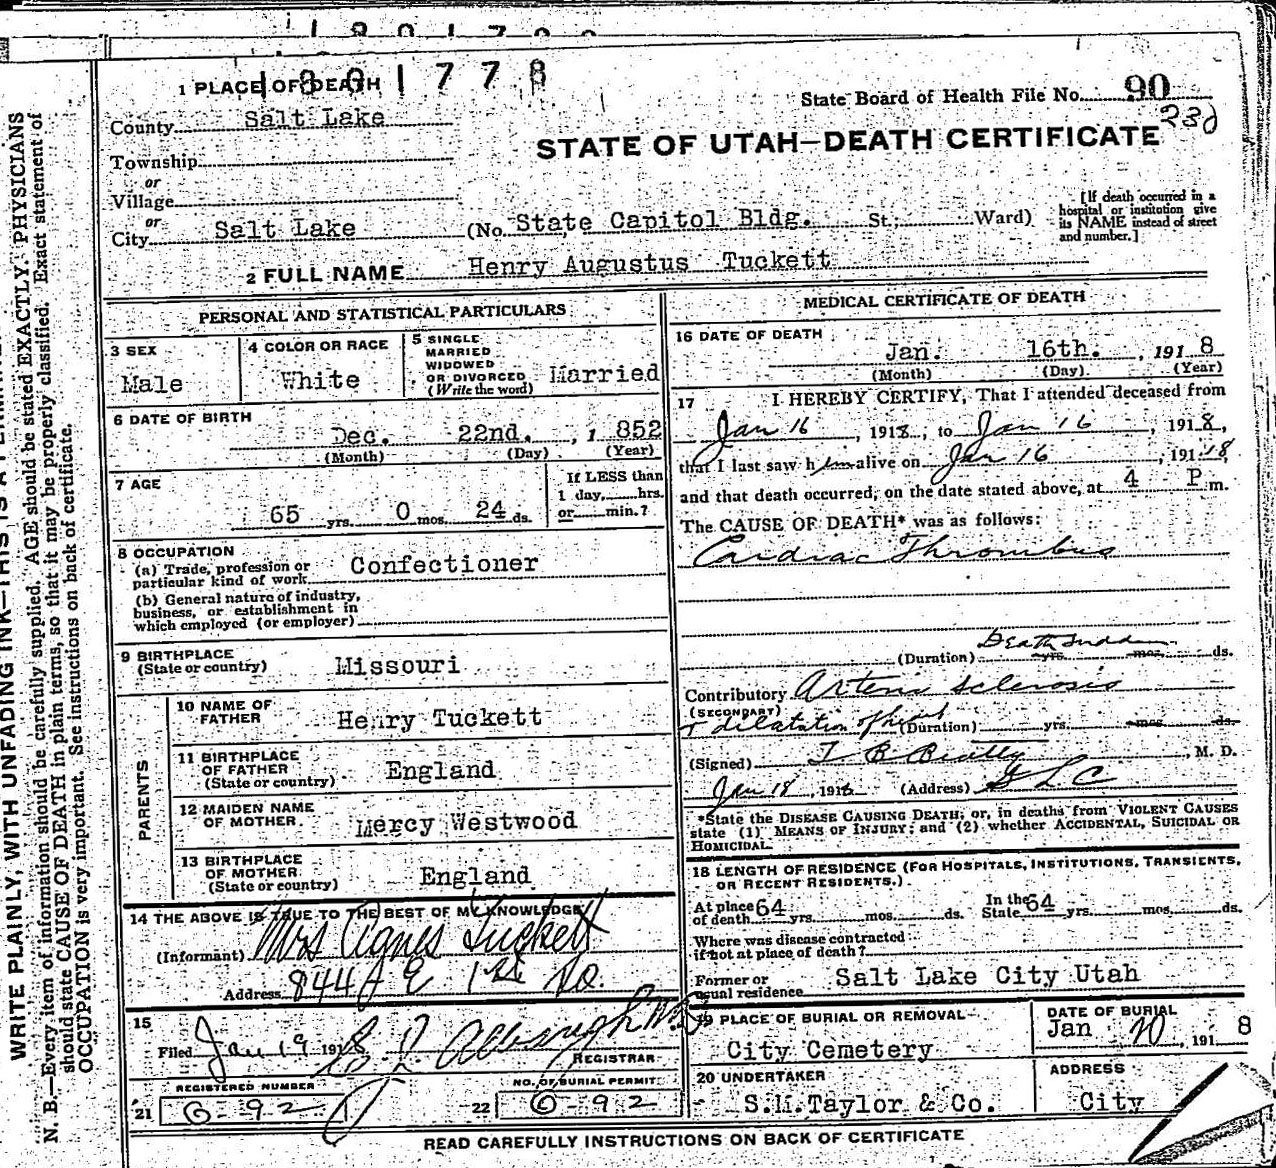 1801778
1 PLACE OF DEATH
State Board of Health File No. 90
230
County Salt Lake
STATE OF UTAH—DEATH CERTIFICATE
Township
or
Village
or
City Salt Lake (No. State Capitol Bldg. St; Ward)
[If death occurred in a
hospital or institution give
its NAME instead of street
and number.]
2 FULL NAME Henry Augustus Tuckett
PERSONAL AND STATISTICAL PARTICULARS
3 SEX
Male
4 COLOR OR RACE
White
5 SINGLE
MARRIED
WIDOWED
OR DIVORCED
(Write the word) Married
6 DATE OF BIRTH
Dec. 22nd. , 1 852
(Month) (Day) (Year)
7 AGE
65 yrs. 0 mos. 24 ds.
If LESS than
1 day, hrs.
or min.?
8 OCCUPATION
(a) Trade, profession or
particular kind of work Confectioner
(b) General nature of industry,
business, or establishment in
which employed (or employer)
9 BIRTHPLACE
(State or country) Missouri
PARENTS
10 NAME OF
FATHER Henry Tuckett
11 BIRTHPLACE
OF FATHER
(State or country) England
12 MAIDEN NAME
OF MOTHER Mercy Westwood
13 BIRTHPLACE
OF MOTHER
(State or country) England
14 THE ABOVE IS TRUE TO THE BEST OF MY KNOWLEDGE
(Informant) Mrs Agnes Tuckett
Address 844 E 1st So.
15
Filed Jan 19 1918
REGISTRAR
REGISTERED NUMBER
21 6-92
NO. OF BURIAL PERMIT
22 6-92
MEDICAL CERTIFICATE OF DEATH
16 DATE OF DEATH
Jan. 16th. , 191 8
(Month) (Day) (Year)
17 I HEREBY CERTIFY, That I attended deceased from
Jan 16 , 1918, to Jan 16 , 1918,
that I last saw him alive on Jan 16 , 191 18,
and that death occurred, on the date stated above, at 4 P m.
The CAUSE OF DEATH* was as follows:
Cardiac Thrombus
Death sudden
(Duration) yrs. mos. ds.
Contributory Arterio sclerosis
(SECONDARY)
& dilatation of heart (Duration) yrs. mos. ds.
(Signed) T B Beatty , M. D.
Jan 18 , 1918 (Address) S L C
*State the DISEASE CAUSING DEATH; or, in deaths from VIOLENT CAUSES
state (1) MEANS OF INJURY; and (2) whether ACCIDENTAL, SUICIDAL OR
HOMICIDAL.
18 LENGTH OF RESIDENCE (FOR HOSPITALS, INSTITUTIONS, TRANSIENTS,
OR RECENT RESIDENTS.)
At place
of death 64 yrs. mos. ds. In the
State 64 yrs. mos. ds.
Where was disease contracted
if not at place of death?
Former or
usual residence Salt Lake City Utah
19 PLACE OF BURIAL OR REMOVAL
City Cemetery
DATE OF BURIAL
Jan 20 , 191 8
20 UNDERTAKER
S.M.Taylor & Co.
ADDRESS
City
READ CAREFULLY INSTRUCTIONS ON BACK OF CERTIFICATE
WRITE PLAINLY, WITH UNFADING INK—THIS IS A
N. B.—Every item of information should be carefully supplied. AGE should be stated EXACTLY. PHYSICIANS
should state CAUSE OF DEATH in plain terms, so that it may be properly classified. Exact statement of
OCCUPATION is very important. See instructions on back of certificate.